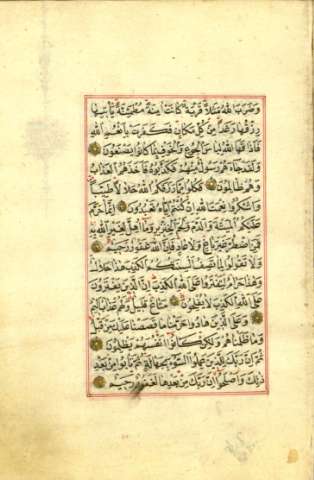 وَضَرَبَ اللَّهُ مَثَلًا قَرْيَةً كَانَتْ آمِنَةً مُطْمَئِنَّةً يَأْتِيهَا
رِزْقُهَا رَغَدًا مِنْ كُلِّ مَكَانٍ فَكَفَرَتْ بِأَنْعُمِ اللَّهِ
فَأَذَاقَهَا اللَّهُ لِبَاسَ الْجُوعِ وَالْخَوْفِ بِمَا كَانُوا يَصْنَعُونَ
وَلَقَدْ جَاءَهُمْ رَسُولٌ مِنْهُمْ فَكَذَّبُوهُ فَأَخَذَهُمُ الْعَذَابُ
وَهُمْ ظَالِمُونَ فَكُلُوا مِمَّا رَزَقَكُمُ اللَّهُ حَلَالًا طَيِّبًا
وَاشْكُرُوا نِعْمَتَ اللَّهِ إِنْ كُنْتُمْ إِيَّاهُ تَعْبُدُونَ إِنَّمَا حَرَّمَ
عَلَيْكُمُ الْمَيْتَةَ وَالدَّمَ وَلَحْمَ الْخِنْزِيرِ وَمَا أُهِلَّ لِغَيْرِ اللَّهِ بِهِ
فَمَنِ اضْطُرَّ غَيْرَ بَاغٍ وَلَا عَادٍ فَإِنَّ اللَّهَ غَفُورٌ رَحِيمٌ
وَلَا تَقُولُوا لِمَا تَصِفُ أَلْسِنَتُكُمُ الْكَذِبَ هَذَا حَلَالٌ
وَهَذَا حَرَامٌ لِتَفْتَرُوا عَلَى اللَّهِ الْكَذِبَ إِنَّ الَّذِينَ يَفْتَرُونَ
عَلَى اللَّهِ الْكَذِبَ لَا يُفْلِحُونَ مَتَاعٌ قَلِيلٌ وَلَهُمْ عَذَابٌ أَلِيمٌ
وَعَلَى الَّذِينَ هَادُوا حَرَّمْنَا مَا قَصَصْنَا عَلَيْكَ مِنْ قَبْلُ
وَمَا ظَلَمْنَاهُمْ وَلَكِنْ كَانُوا أَنْفُسَهُمْ يَظْلِمُونَ
ثُمَّ إِنَّ رَبَّكَ لِلَّذِينَ عَمِلُوا السُّوءَ بِجَهَالَةٍ ثُمَّ تَابُوا مِنْ بَعْدِ
ذَلِكَ وَأَصْلَحُوا إِنَّ رَبَّكَ مِنْ بَعْدِهَا لَغَفُورٌ رَحِيمٌ